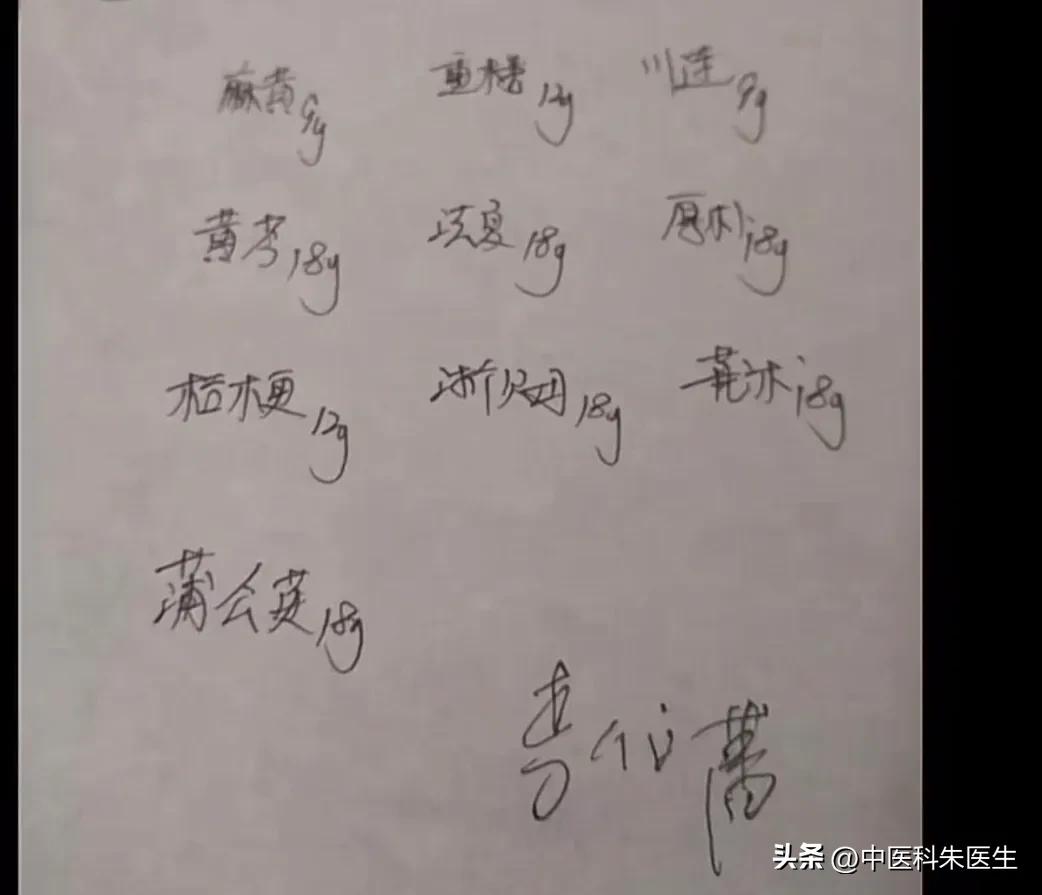 麻黄9g 重楼12g 川连9g
黄芩18g 法夏18g 厚朴18g
桔梗12g 浙贝母18g 莪术18g
蒲公英18g
头条 @中医科朱医生